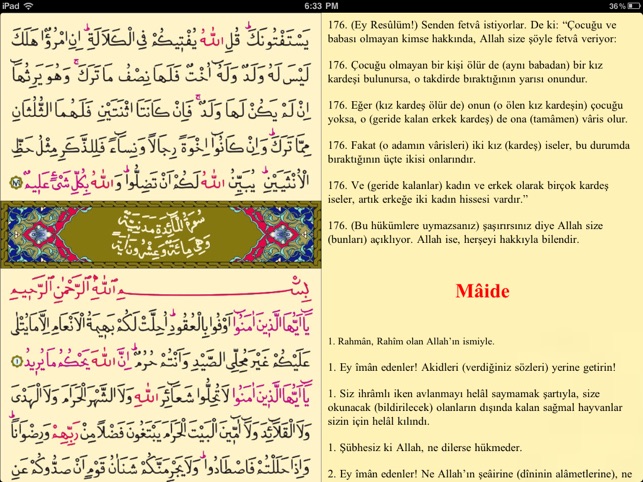 iPad 6:33 PM 36%
يَسْتَفْتُونَكَ قُلِ اللّٰهُ يُفْتِيكُمْ فِي الْكَلَالَةِ اِنِ امْرُؤٌا هَلَكَ
لَيْسَ لَهُ وَلَدٌ وَلَهُ اُخْتٌ فَلَهَا نِصْفُ مَا تَرَكَ وَهُوَ يَرِثُهَا
اِنْ لَمْ يَكُنْ لَهَا وَلَدٌ فَاِنْ كَانَتَا اثْنَتَيْنِ فَلَهُمَا الثُّلُثَانِ
مِمَّا تَرَكَ وَاِنْ كَانُوا اِخْوَةً رِجَالًا وَنِسَاءً فَلِلذَّكَرِ مِثْلُ حَظِّ
الْاُنْثَيَيْنِ يُبَيِّنُ اللّٰهُ لَكُمْ اَنْ تَضِلُّوا وَاللّٰهُ بِكُلِّ شَيْءٍ عَلِيمٌ
سُورَةُ الْمَائِدَةِ مَدَنِيَّةٌ
وَهِيَ مِائَةٌ وَعِشْرُونَ اٰيَةً
بِسْمِ اللّٰهِ الرَّحْمٰنِ الرَّحِيمِ
يَا اَيُّهَا الَّذِينَ اٰمَنُوا اَوْفُوا بِالْعُقُودِ اُحِلَّتْ لَكُمْ بَهِيمَةُ الْاَنْعَامِ اِلَّا مَا يُتْلٰى
عَلَيْكُمْ غَيْرَ مُحِلِّي الصَّيْدِ وَاَنْتُمْ حُرُمٌ اِنَّ اللّٰهَ يَحْكُمُ مَا يُرِيدُ ١
يَا اَيُّهَا الَّذِينَ اٰمَنُوا لَا تُحِلُّوا شَعَائِرَ اللّٰهِ وَلَا الشَّهْرَ الْحَرَامَ وَلَا الْهَدْيَ
وَلَا الْقَلَائِدَ وَلَا اٰمِّينَ الْبَيْتَ الْحَرَامَ يَبْتَغُونَ فَضْلًا مِنْ رَبِّهِمْ وَرِضْوَانًا
وَاِذَا حَلَلْتُمْ فَاصْطَادُوا وَلَا يَجْرِمَنَّكُمْ شَنَاٰنُ قَوْمٍ اَنْ صَدُّوكُمْ عَنِ
176. (Ey Resûlüm!) Senden fetvâ istiyorlar. De ki: “Çocuğu ve
babası olmayan kimse hakkında, Allah size şöyle fetvâ veriyor:
176. Çocuğu olmayan bir kişi ölür de (aynı babadan) bir kız
kardeşi bulunursa, o takdirde bıraktığının yarısı onundur.
176. Eğer (kız kardeş ölür de) onun (o ölen kız kardeşin) çocuğu
yoksa, o (geride kalan erkek kardeş) de ona (tamâmen) vâris olur.
176. Fakat (o adamın vârisleri) iki kız (kardeş) iseler, bu durumda
bıraktığının üçte ikisi onlarındır.
176. Ve (geride kalanlar) kadın ve erkek olarak birçok kardeş
iseler, artık erkeğe iki kadın hissesi vardır.”
176. (Bu hükümlere uymazsanız) şaşırırsınız diye Allah size
(bunları) açıklıyor. Allah ise, herşeyi hakkıyla bilendir.
Mâide
1. Rahmân, Rahîm olan Allah’ın ismiyle.
1. Ey îmân edenler! Akidleri (verdiğiniz sözleri) yerine getirin!
1. Siz ihrâmlı iken avlanmayı helâl saymamak şartıyla, size
okunacak (bildirilecek) olanların dışında kalan sağmal hayvanlar
sizin için helâl kılındı.
1. Şübhesiz ki Allah, ne dilerse hükmeder.
2. Ey îmân edenler! Ne Allah’ın şeâirine (dîninin alâmetlerine), ne